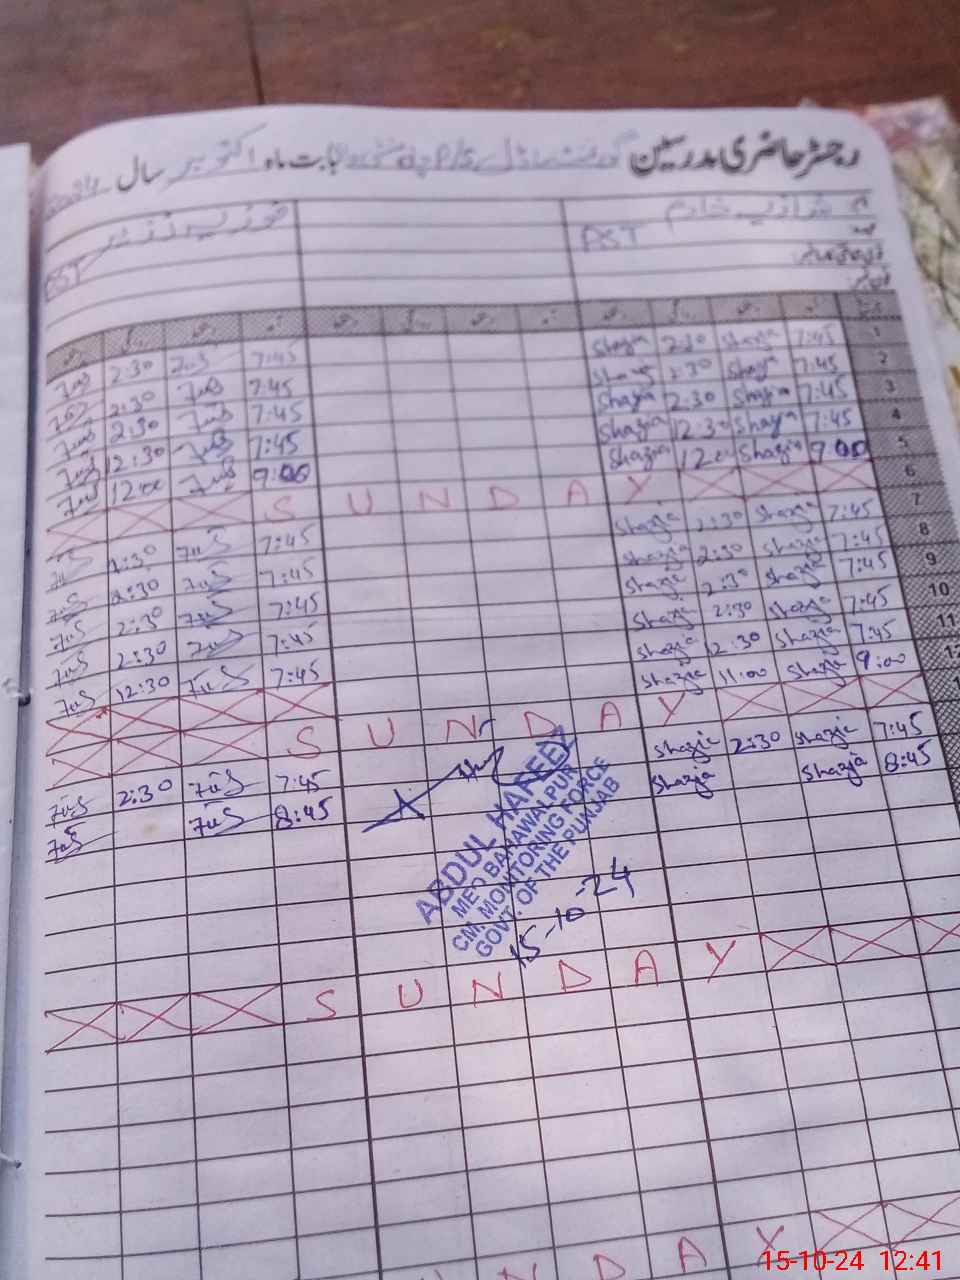 رجسٹر حاضری مدرسین گورنمنٹ ماڈل بابت ماہ اکتوبر سال
شازیہ خانم فوزیہ نذیر
PST PST
1 7:45 Shazia 2:30 Shazia 7:45 2:30
2 7:45 Shazia 2:30 Shazia 7:45 2:30
3 7:45 Shazia 2:30 Shazia 7:45 2:30
4 7:45 Shazia 12:30 Shazia 7:45 12:30
5 9:00 Shazia 12:00 Shazia 9:00 12:00
6 S U N D A Y
7 7:45 Shazia 2:30 Shazia 7:45 2:30
8 7:45 Shazia 2:30 Shazia 7:45 2:30
9 7:45 Shazia 2:30 Shazia 7:45 2:30
10 7:45 Shazia 2:30 Shazia 7:45 2:30
11 7:45 Shazia 12:30 Shazia 7:45 12:30
12 9:00 Shazia 11:00 Shazia
S U N D A Y
7:45 Shazia 2:30 Shazia 7:45 2:30
8:45 Shazia Shazia 8:45
ABDUL HAFEEZ
MEO BAHAWALPUR
CM. MONITORING FORCE
GOVT. OF THE PUNJAB
15-10-24
S U N D A Y
N D A Y
15-10-24 12:41